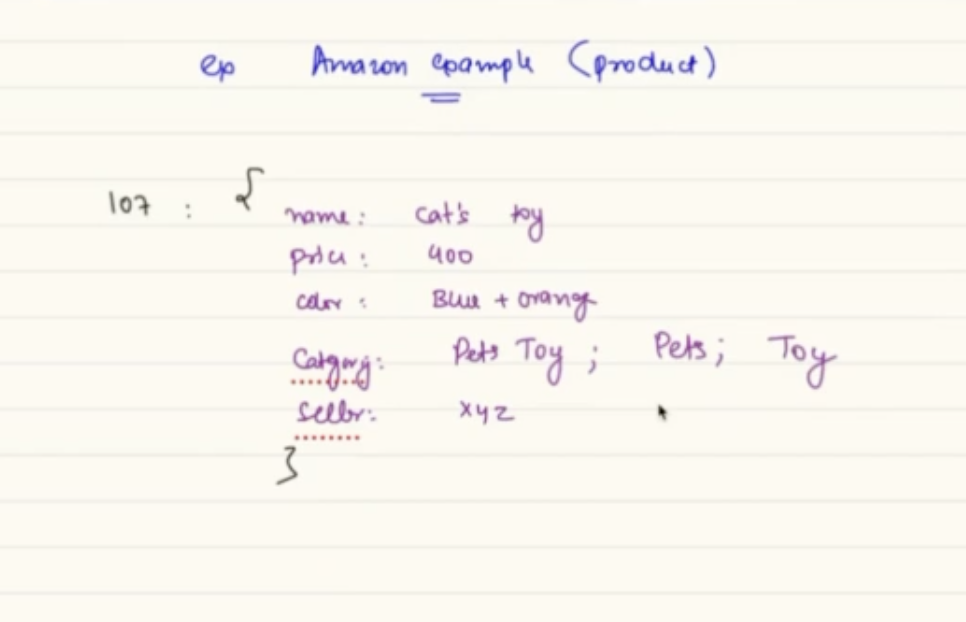 ex Amazon example (product)
107 : {
name: Cat's toy
price: 400
color: Blue + orange
Category: Pets Toy ; Pets; Toy
Seller: xyz
}